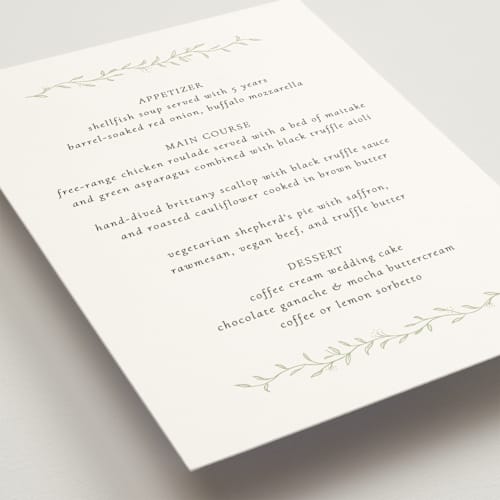 APPETIZER
shellfish soup served with 5 years
barrel-soaked red onion, buffalo mozzarella
MAIN COURSE
free-range chicken roulade served with a bed of maitake
and green asparagus combined with black truffle aioli
hand-dived brittany scallop with black truffle sauce
and roasted cauliflower cooked in brown butter
vegetarian shepherd's pie with saffron,
rawmesan, vegan beef, and truffle butter
DESSERT
coffee cream wedding cake
chocolate ganache & mocha buttercream
coffee or lemon sorbetto